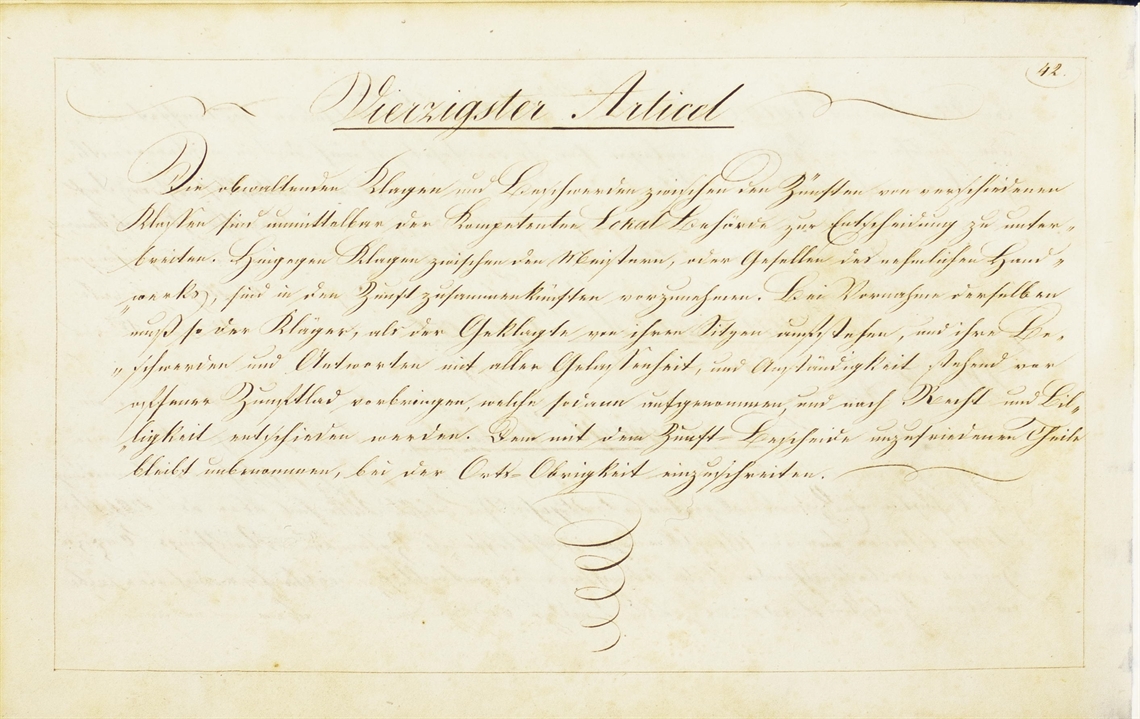 42.
Vierzigster Articel
Die obwaltenden Klagen und Beschwerden zwischen den Zünften von verschiedenen
Klassen sind unmittelbar der Kompetenten Lokal Behörde zur Entscheidung zu unter„
breiten. Hingegen Klagen zwischen den Meistern, oder Gesellen des nehmlichen Hand„
„werks, sind in den Zunftzusammenkünften vorzunehmen. Bei Vornahme derselben
muß so der Kläger, als der Geklagte von ihren Sitzen aufstehen, und ihre Be„
„schwerden und Antworten mit aller Gelassenheit, und Anständigkeit stehend vor
offener Zunftlad vorbringen, welche sodann aufgenommen, und nach Recht und Bil„
„ligkeit entschieden werden. Dem mit dem Zunft-Bescheide unzufriedenen Theile
bleibt unbenommen, bei der Orts-Obrigkeit einzuschreiten.